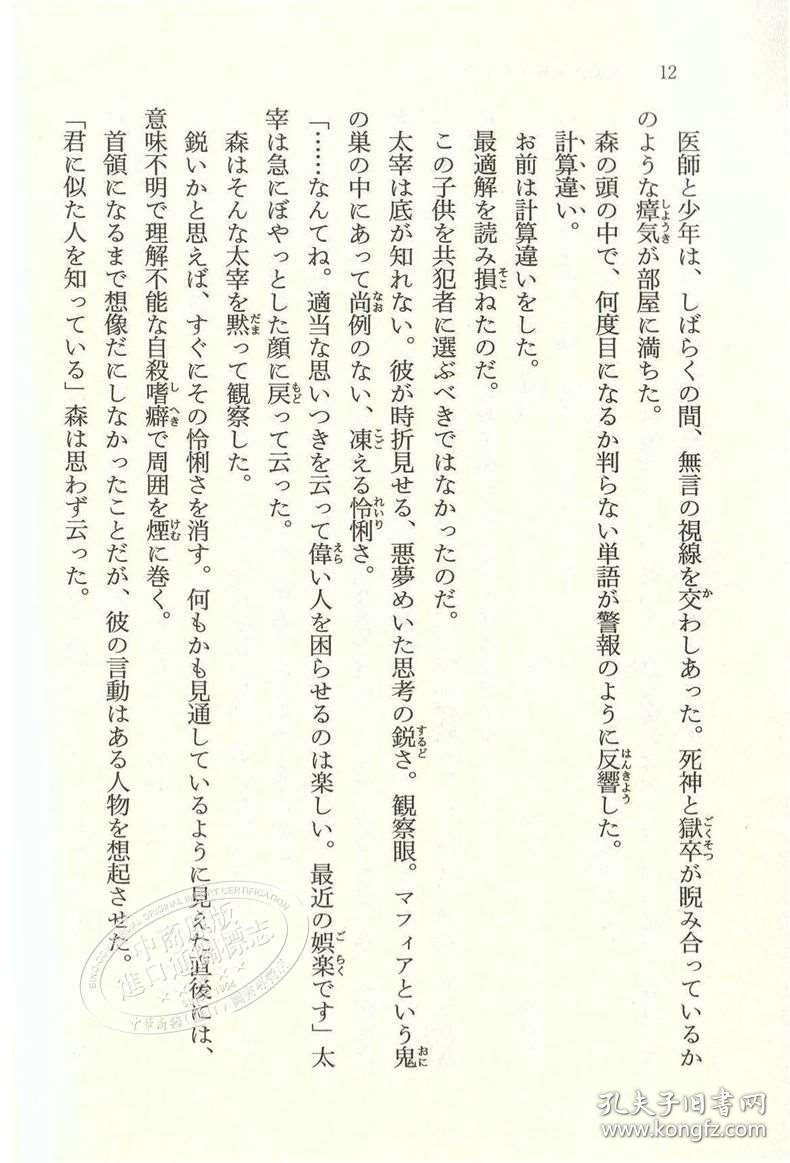 12
医師と少年は、しばらくの間、無言の視線を交わしあった。死神と獄卒が睨み合っているか
のような瘴気が部屋に満ちた。
森の頭の中で、何度目になるか判らない単語が警報のように反響した。
計算違い。
お前は計算違いをした。
最適解を読み損ねたのだ。
この子供を共犯者に選ぶべきではなかったのだ。
太宰は底が知れない。彼が時折見せる、悪夢めいた思考の鋭さ。観察眼。マフィアという鬼
の巣の中にあって尚例のない、凍える怜悧さ。
「……なんてね。適当な思いつきを云って偉い人を困らせるのは楽しい。最近の娯楽です」太
宰は急にぼやっとした顔に戻って云った。
森はそんな太宰を黙って観察した。
鋭いかと思えば、すぐにその怜悧さを消す。何もかも見通しているように見えた直後には、
意味不明で理解不能な自殺嗜癖で周囲を煙に巻く。
首領になるまで想像だにしなかったことだが、彼の言動はある人物を想起させた。
「君に似た人を知っている」森は思わず云った。
中商原版
孔夫子旧書网
www.kongfz.com